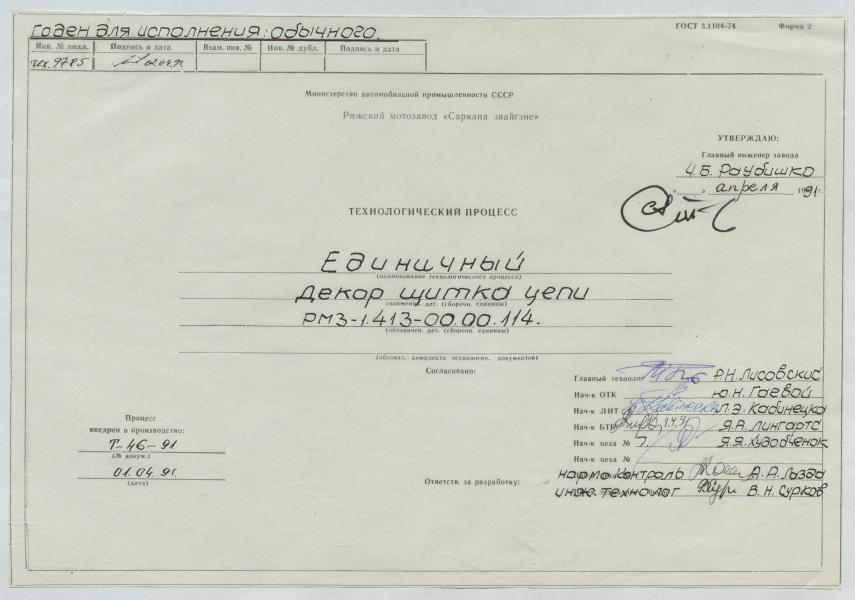 Годен для исполнения: обычного.
ГОСТ 3.1104-74 Форма 2
Инв. № подл. Подпись и дата Взам. инв. № Инв. № дубл. Подпись и дата
тех. 9785 02.04.91
Министерство автомобильной промышленности СССР
Рижский мотозавод «Саркана звайгзне»
УТВЕРЖДАЮ:
Главный инженер завода
Раубишко
« » апреля 1991 г.
ТЕХНОЛОГИЧЕСКИЙ ПРОЦЕСС
Единичный
(наименование технологического процесса)
Декор щитка цепи
(наименов. дет. (сборочн. единицы)
РМЗ-1.413-00.00.114.
(обозначен. дет. (сборочн. единицы)
(обознач. комплекта технологич. документов)
Согласовано:
Главный технолог Р.Н. Лисовский
Нач-к ОТК Ю.Н. Гаевой
Нач-к ЛИТ Л.Э. Кабинецка
Нач-к БТВ Я.А. Лингартс
Нач-к цеха № 7. Я.Я. Худобченок
Нач-к цеха №
нормо контроль А.А. Лызда
Ответств. за разработку: инж. технолог В.Н. Сурков
Процесс
внедрен в производство:
Т-46-91
(№ докум.)
01.04.91.
(дата)